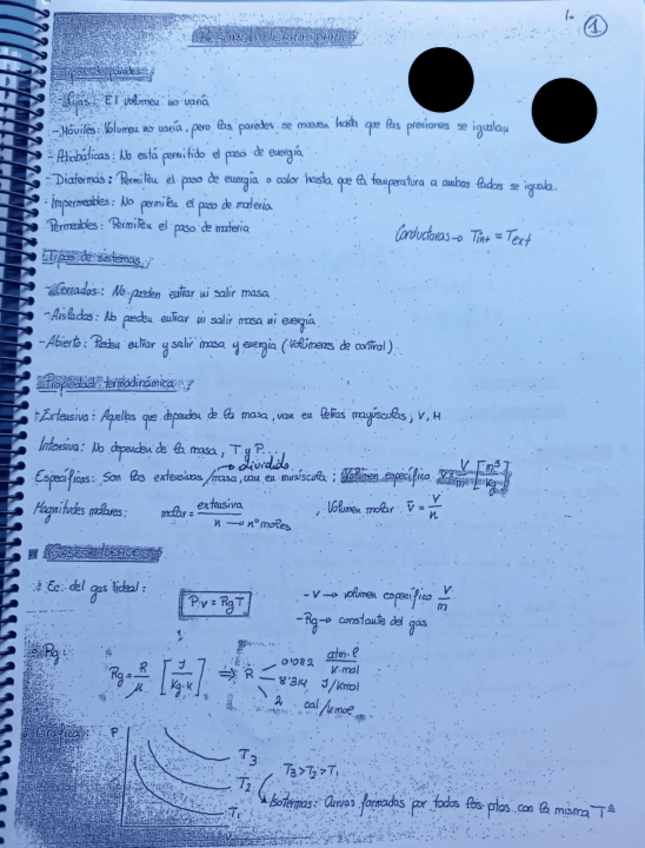 1
Tipos de paredes:
- Fijas: El volumen no varía
- Móviles: Volumen no varía, pero las paredes se mueven hasta que las presiones se igualan
- Adiabáticas: No está permitido el paso de energía
- Diatermas: Permiten el paso de energía o calor hasta que la temperatura a ambos lados se iguala.
- Impermeables: No permiten el paso de materia
Permeables: Permiten el paso de materia
Conductoras → Tint =Text
Tipos de sistemas:
- Cerrados: No pueden entrar ni salir masa
- Aislados: No pueden entrar ni salir masa ni energía
- Abierto: Pueden entrar y salir masa y energía (Volúmenes de control)
Propiedad termodinámica:
- Extensiva: Aquellas que dependen de la masa, van en letras mayúsculas, V, H
Intensiva: No dependen de la masa, T y P.
→ dividido
Específicas: Son las extensivas/masa, van en minúscula; Volumen específico V/m [m³/kg]
Magnitudes molares: molar = extensiva/n → nº moles, Volumen molar v̄ = V/n
Gases ideales
Ec. del gas ideal: P·v = Rg T
- V → volumen específico V/m
- Rg → constante del gas
Rg:
Rg = R/μ [J/Kg·K] ⇒ R
0'082 atm·l/K·mol
8'314 J/Kmol
2 cal/Kmol
Gráfica: P
T3
T3 > T2 > T1
T2
Isotermas: Curvas formadas por todos los ptos con la misma Tª
T1